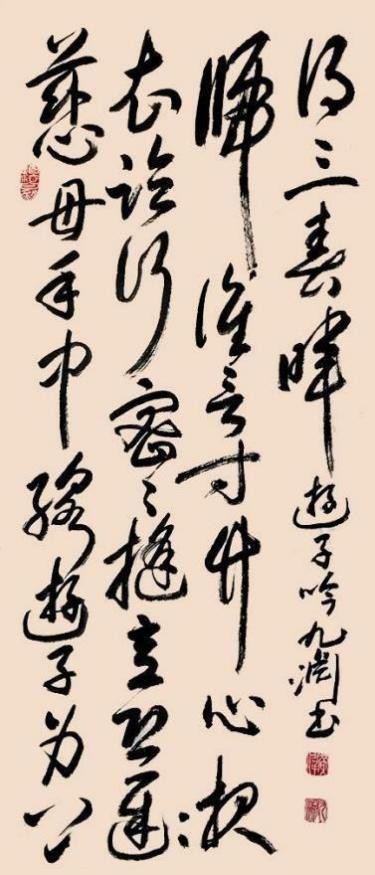 慈母手中線遊子身上
衣臨行密々縫意恐遲々
歸誰言寸草心報
得三春暉 遊子吟 九淵书